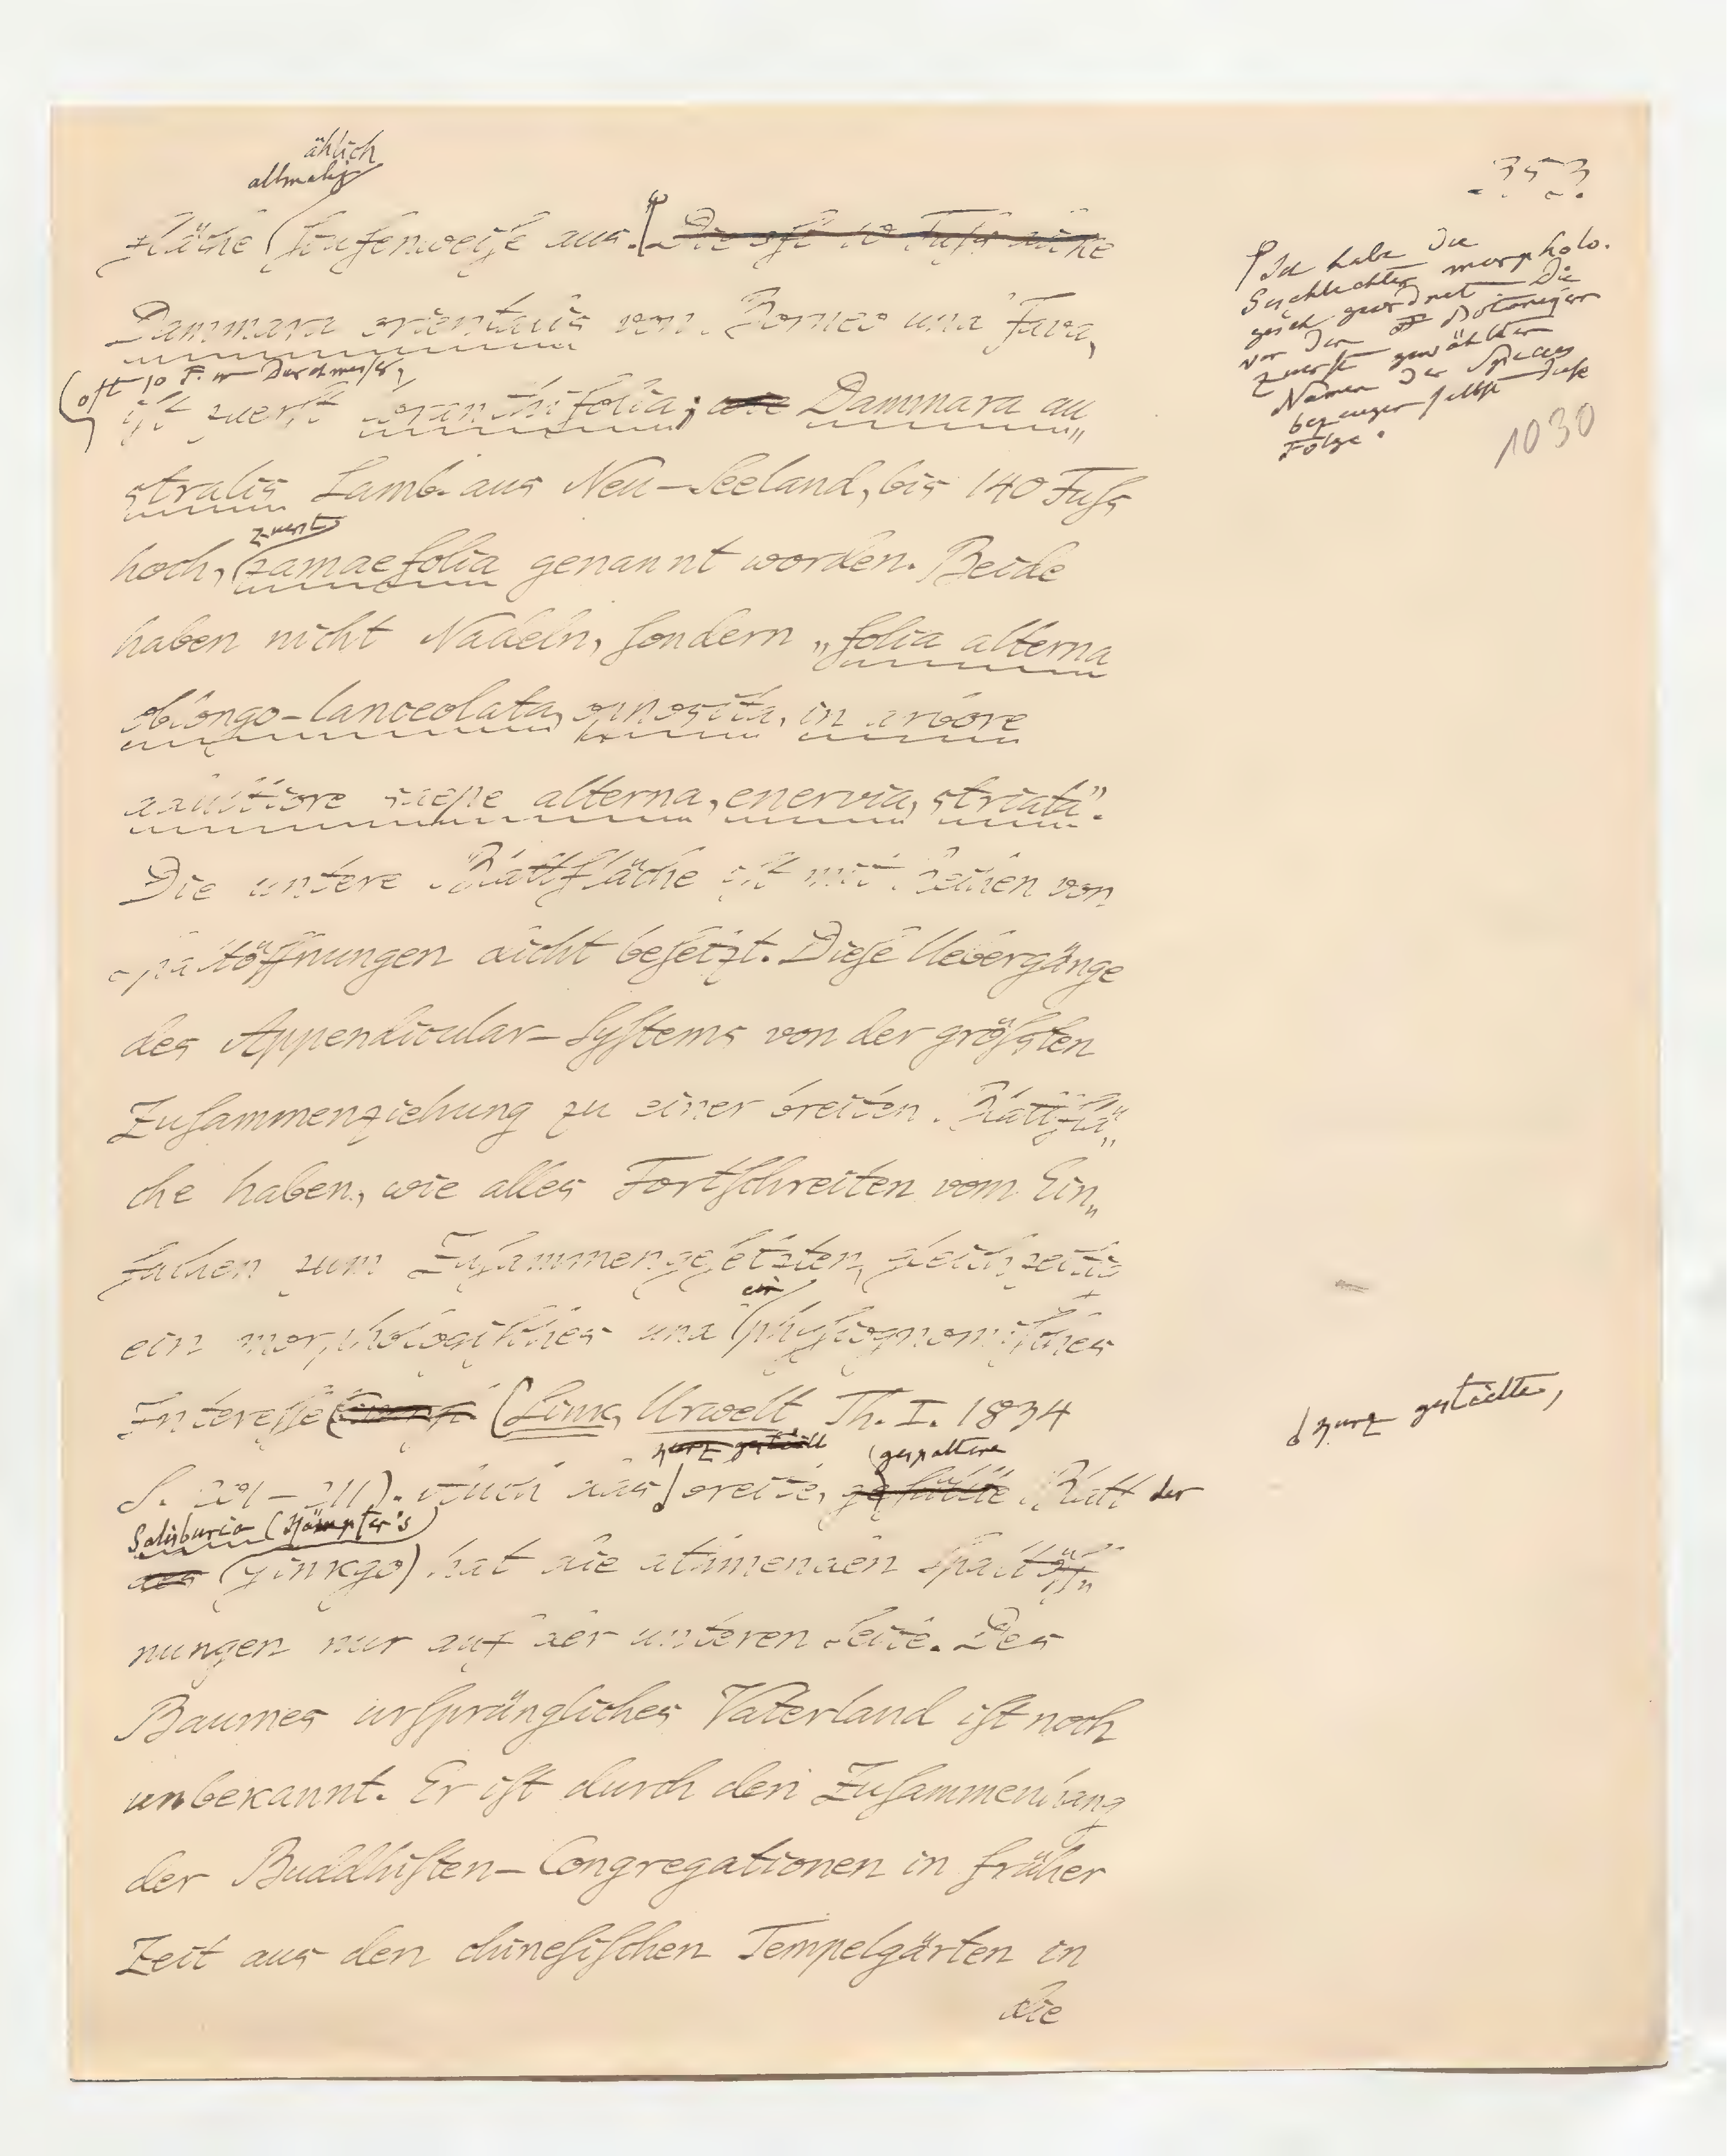 ählich
allmalig
353
fläche stufenweise aus. Die oft 10 Fuss dicke
Dammara orientalis von Borneo und Java,
(oft 10 F. im Durchmesser,
ist zuerst loranthifolia; die Dammara au„
stralis Lamb. aus Neu-Seeland, bis 140 Fuss
zuerst
hoch, (zamaefolia genannt worden. Beide
haben nicht Nadeln, sondern „folia alterna
oblongo-lanceolata, opposita, in arbore
adultiore saepe alterna, enervia, striata".
Die untere Blattfläche ist mit Reihen von
Spaltöffnungen dicht besetzt. Diese Uebergänge
des Appendicular-Systems von der grössten
Zusammenziehung zu einer breiten Blattflä„
che haben, wie alles Fortschreiten vom Ein„
fachen zum Zusammengesetzten, gleichzeitig
ein
ein morphologisches und (physiognomisches
Interesse (Link, Urwelt Th. I. 1834
kurz gestielt (gespaltene
S. 201–211). Auch das breite, Blatt der
Salisburia (Kämpfer's
des (Ginkgo) hat die athmenden Spaltöff„
nungen nur auf der unteren Seite. Des
Baumes ursprüngliches Vaterland ist noch
unbekannt. Er ist durch den Zusammenhang
der Buddhisten-Congregationen in früher
Zeit aus den chinesischen Tempelgärten in
die
Ich habe die
Geschlechter morpholo.
gisch geordnet. Die
von den Botanikern
zuerst gewählten
Namen der Species
bezeugen selbst diese
Folge.
1030
kurz gestielte,